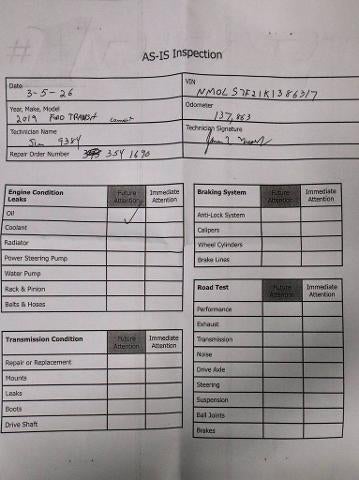 AS-IS Inspection
Date 3-5-26
VIN NM0LS7F21K1386317
Year, Make, Model 2019 FORD TRANSIT Connect
Odometer 137,863
Technician Name Jim 9384
Technician Signature
Repair Order Number 354 1690
Engine Condition Leaks Future Attention Immediate Attention
Oil ✓
Coolant
Radiator
Power Steering Pump
Water Pump
Rack & Pinion
Belts & Hoses
Transmission Condition Future Attention Immediate Attention
Repair or Replacement
Mounts
Leaks
Boots
Drive Shaft
Braking System Future Attention Immediate Attention
Anti-Lock System
Calipers
Wheel Cylinders
Brake Lines
Road Test Future Attention Immediate Attention
Performance
Exhaust
Transmission
Noise
Drive Axle
Steering
Suspension
Ball Joints
Brakes